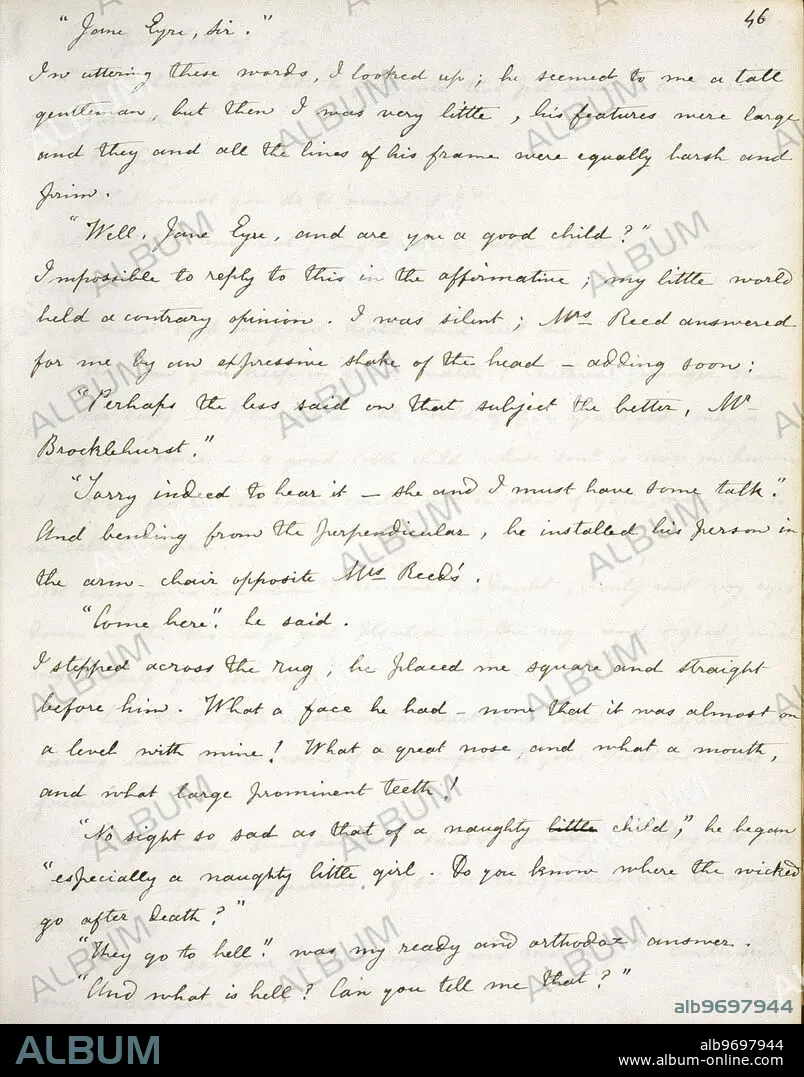 46
"Jane Eyre, sir."
In uttering these words, I looked up; he seemed to me a tall
gentleman, but then I was very little, his features were large
and they and all the lines of his frame were equally harsh and
prim.
"Well, Jane Eyre, and are you a good child?"
Impossible to reply to this in the affirmative; my little world
held a contrary opinion. I was silent; Mrs Reed answered
for me by an expressive shake of the head - adding soon;
"Perhaps the less said on that subject the better, Mr
Brocklehurst."
"Sorry indeed to hear it - she and I must have some talk."
And bending from the perpendicular, he installed his person in
the arm-chair opposite Mrs Reed's.
"Come here", he said.
I stepped across the rug; he placed me square and straight
before him. What a face he had - now that it was almost on
a level with mine! What a great nose, and what a mouth,
and what large prominent teeth!
"No sight so sad as that of a naughty little child," he began
"especially a naughty little girl. Do you know where the wicked
go after death?"
"They go to hell." was my ready and orthodox answer.
"And what is hell? Can you tell me that?"
alb9697944
ALBUM
alb9697944
www.album-online.com